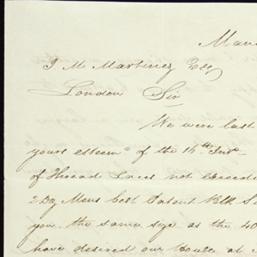 Man
J M Martinez Esq
London Sir
We were last
yours esteem^d of the 14th Inst
of Thread Laces not exceedi
2 Dz Mens best Patent Blk S
you the same size as the 40
have desired our House at